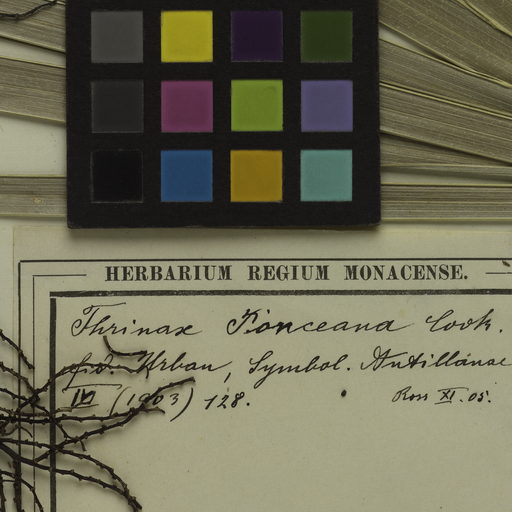 HERBARIUM REGIUM MONACENSE.
Thrinax Ponceana Cook.
fid. Urban, Symbol. Antillanae
IV (1903) 128. Ross XI. 05.